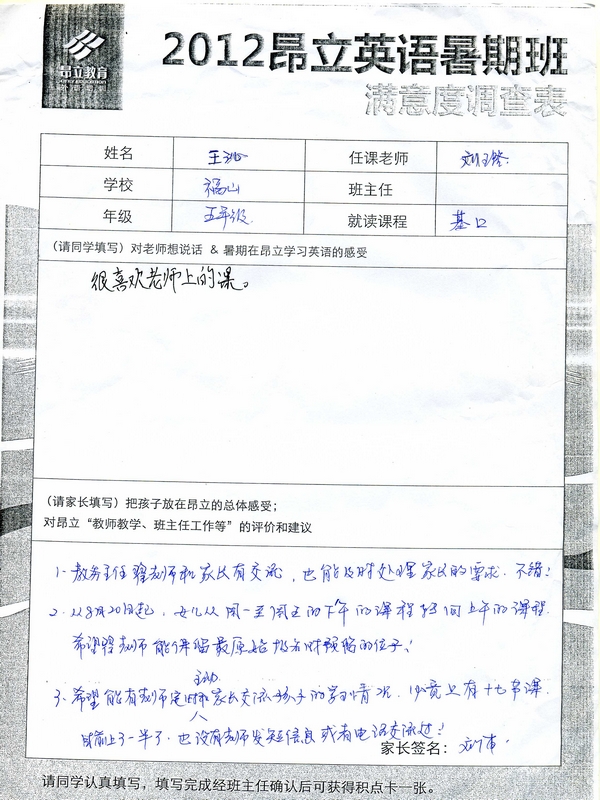 昂立教育
2012昂立英语暑期班
满意度调查表
姓名 王 任课老师 刘
学校 福山 班主任
年级 五年级 就读课程 基口
(请同学填写) 对老师想说话 & 暑期在昂立学习英语的感受
很喜欢老师上的课。
(请家长填写) 把孩子放在昂立的总体感受;
对昂立“教师教学、班主任工作等”的评价和建议
1. 教务主任翟老师和家长有交流,也能及时处理家长的要求.不错!
2. 从8月20日起,女儿从周一至周五的下午的课程 上午的课程.
希望翟老师能保留最原始报名时预留的位子!
3. 希望能有老师定时和主动家长交流孩子的学习情况.毕竟上有十七节课.
目前上了一半了.也没有老师发短信息或者电话交流过!
家长签名:
请同学认真填写,填写完成经班主任确认后可获得积点卡一张。